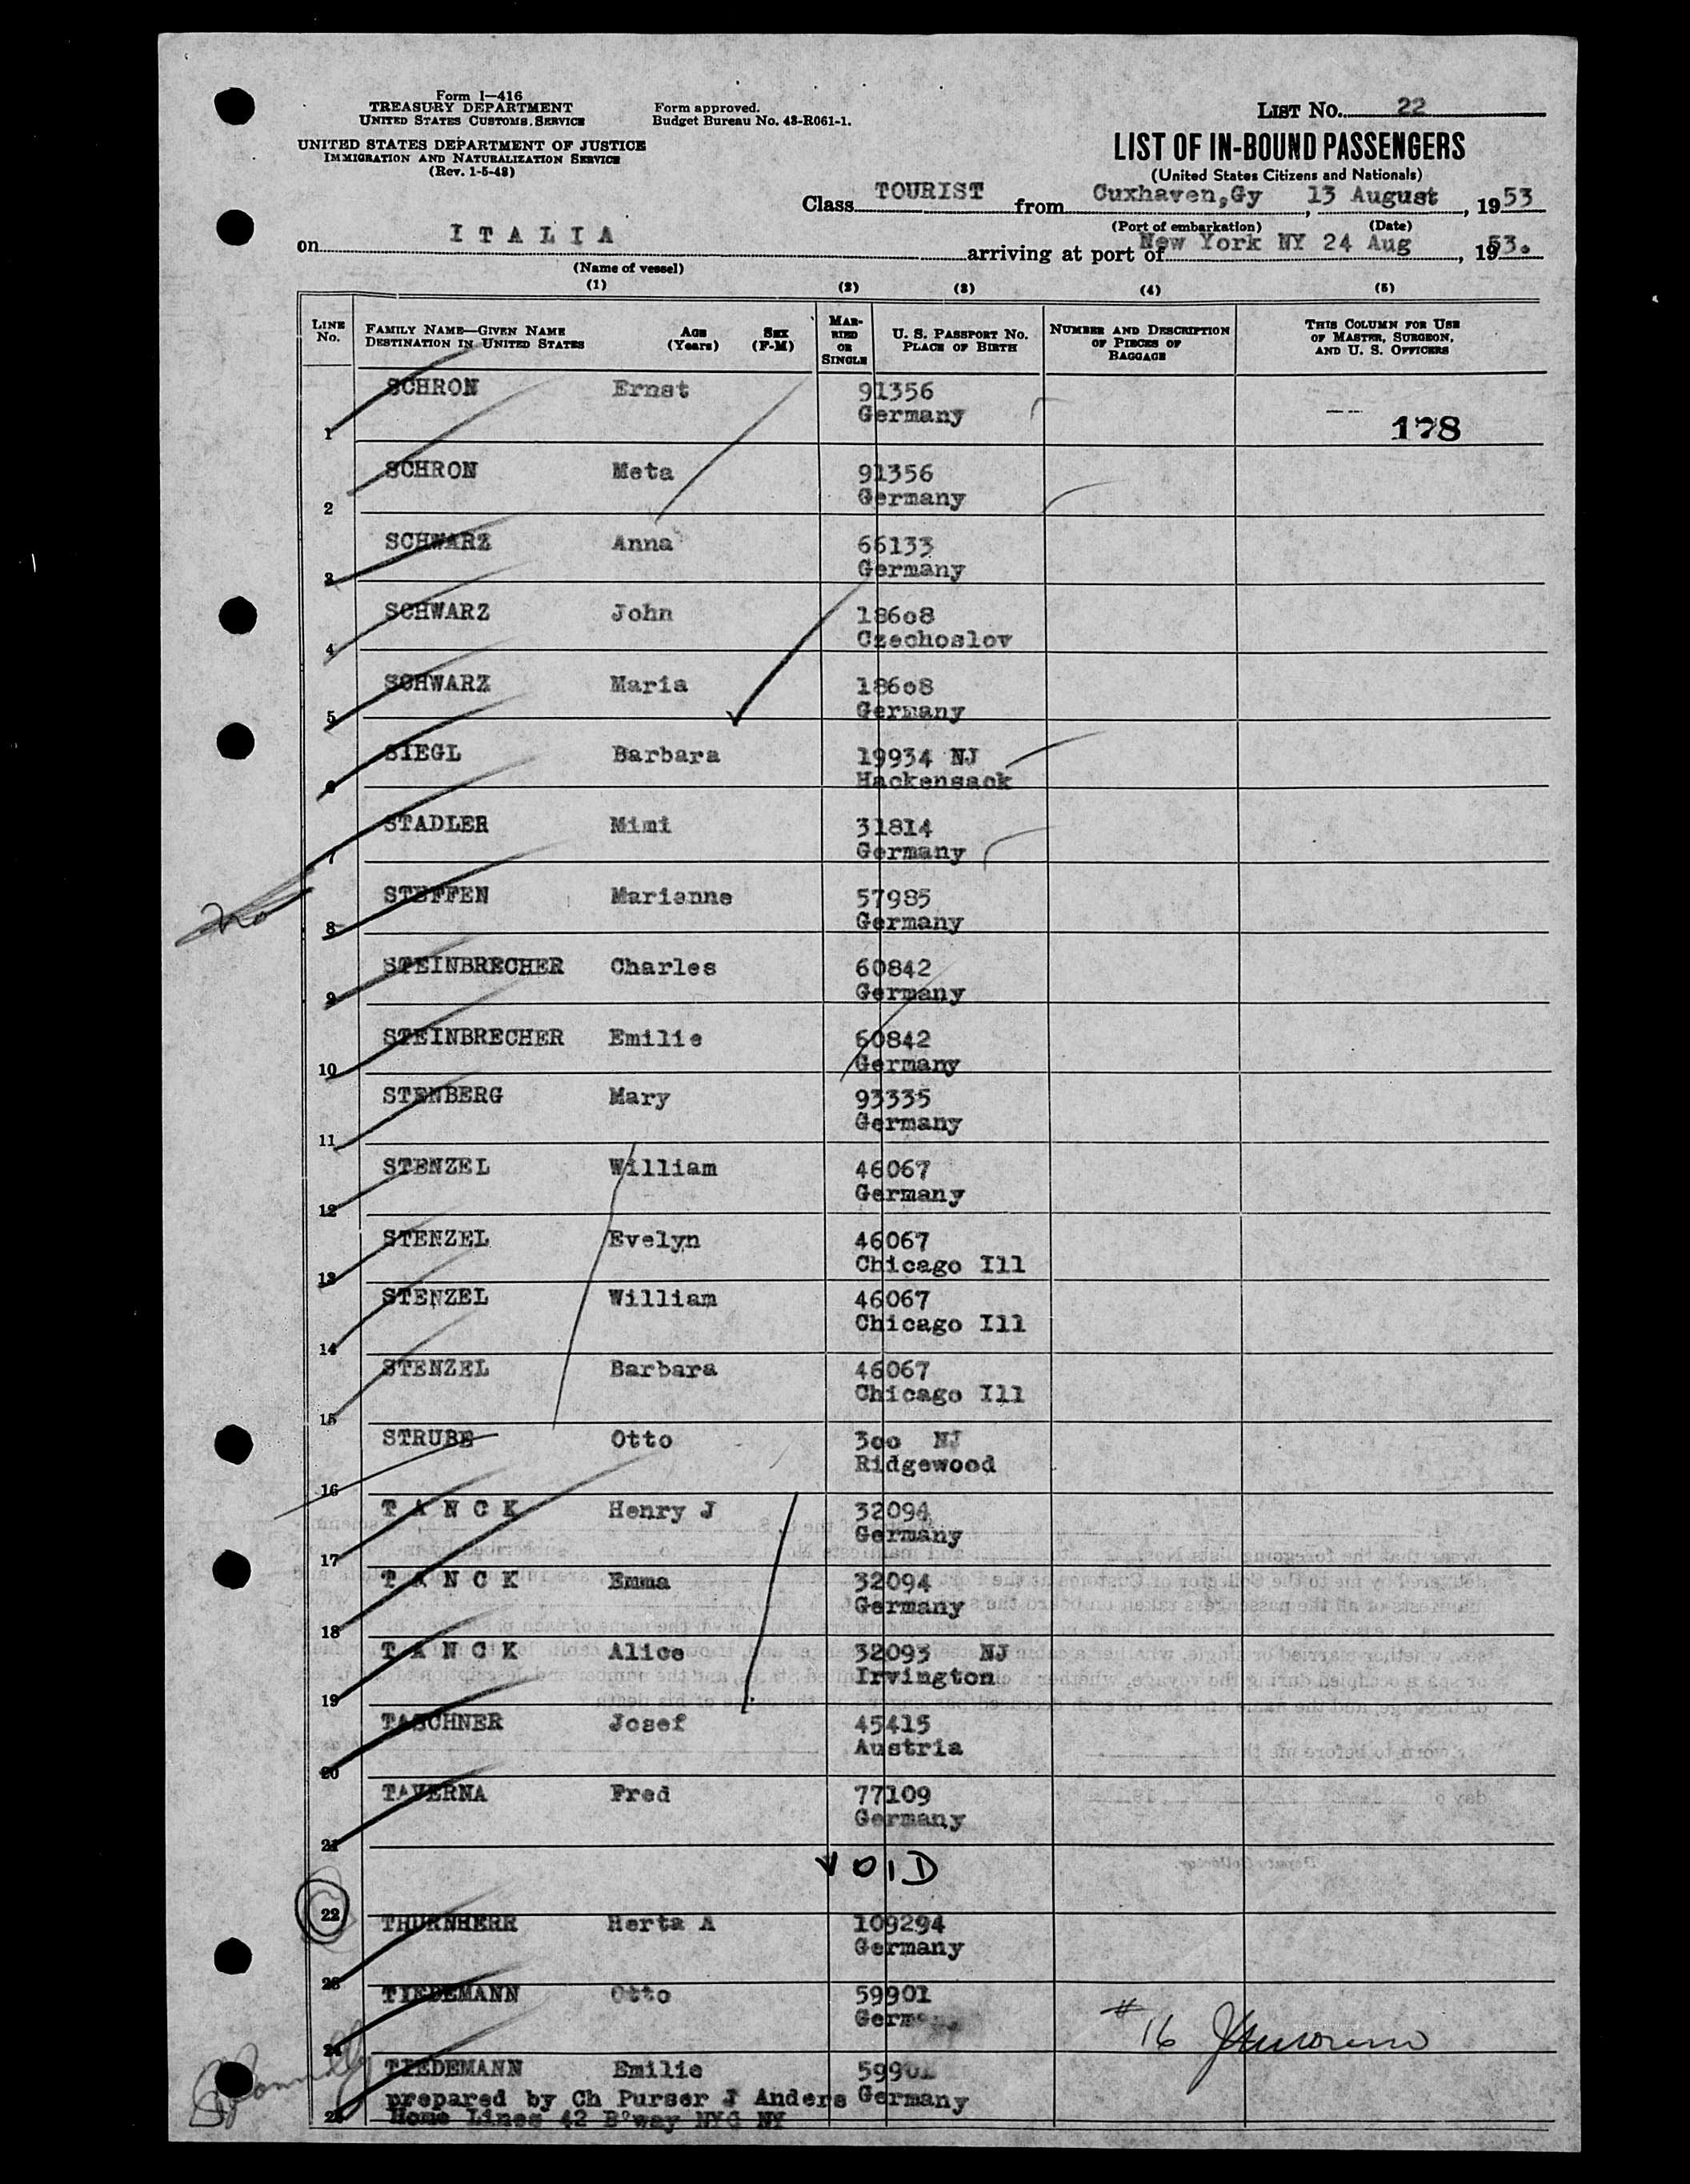 Form I—416
TREASURY DEPARTMENT
UNITED STATES CUSTOMS SERVICE
UNITED STATES DEPARTMENT OF JUSTICE
IMMIGRATION AND NATURALIZATION SERVICE
(Rev. 1-5-48)
Form approved.
Budget Bureau No. 43-R061-1.
LIST No. 22
LIST OF IN-BOUND PASSENGERS
(United States Citizens and Nationals)
Class TOURIST from Cuxhaven,Gy , 13 August , 1953
(Port of embarkation) (Date)
on I T A L I A arriving at port of New York NY 24 Aug , 1953.
(Name of vessel)
(1) (2) (3) (4) (5)
LINE No. FAMILY NAME—GIVEN NAME DESTINATION IN UNITED STATES AGE (Years) SEX (F-M) MARRIED OR SINGLE U. S. PASSPORT No. PLACE OF BIRTH NUMBER AND DESCRIPTION OF PIECES OF BAGGAGE THIS COLUMN FOR USE OF MASTER, SURGEON, AND U. S. OFFICERS
SCHRON Ernst 91356
Germany
1 178
SCHRON Meta 91356
Germany
2
SCHWARZ Anna 66133
Germany
3
SCHWARZ John 18608
Czechoslov
4
SCHWARZ Maria 18608
Germany
5
SIEGL Barbara 19934 NJ
Hackensack
6
STADLER Mimi 31814
Germany
7
no
STEFFEN Marianne 57985
Germany
8
STEINBRECHER Charles 60842
Germany
9
STEINBRECHER Emilie 60842
Germany
10
STENBERG Mary 93335
Germany
11
STENZEL William 46067
Germany
12
STENZEL Evelyn 46067
Chicago Ill
13
STENZEL William 46067
Chicago Ill
14
STENZEL Barbara 46067
Chicago Ill
15
STRUBE Otto 300 NJ
Ridgewood
16
T A N C K Henry J 32094
Germany
17
T A N C K Emma 32094
Germany
18
T A N C K Alice 32093 NJ
Irvington
19
TASCHNER Josef 45415
Austria
20
TAVERNA Fred 77109
Germany
21
VOID
22
THURNHERR Herta A 109294
Germany
23
TIEDEMANN Otto 59901
Germany
24
# 16
TIEDEMANN Emilie 59901
prepared by Ch Purser J Anders Germany
25 Home Lines 42 B°way NYC NY